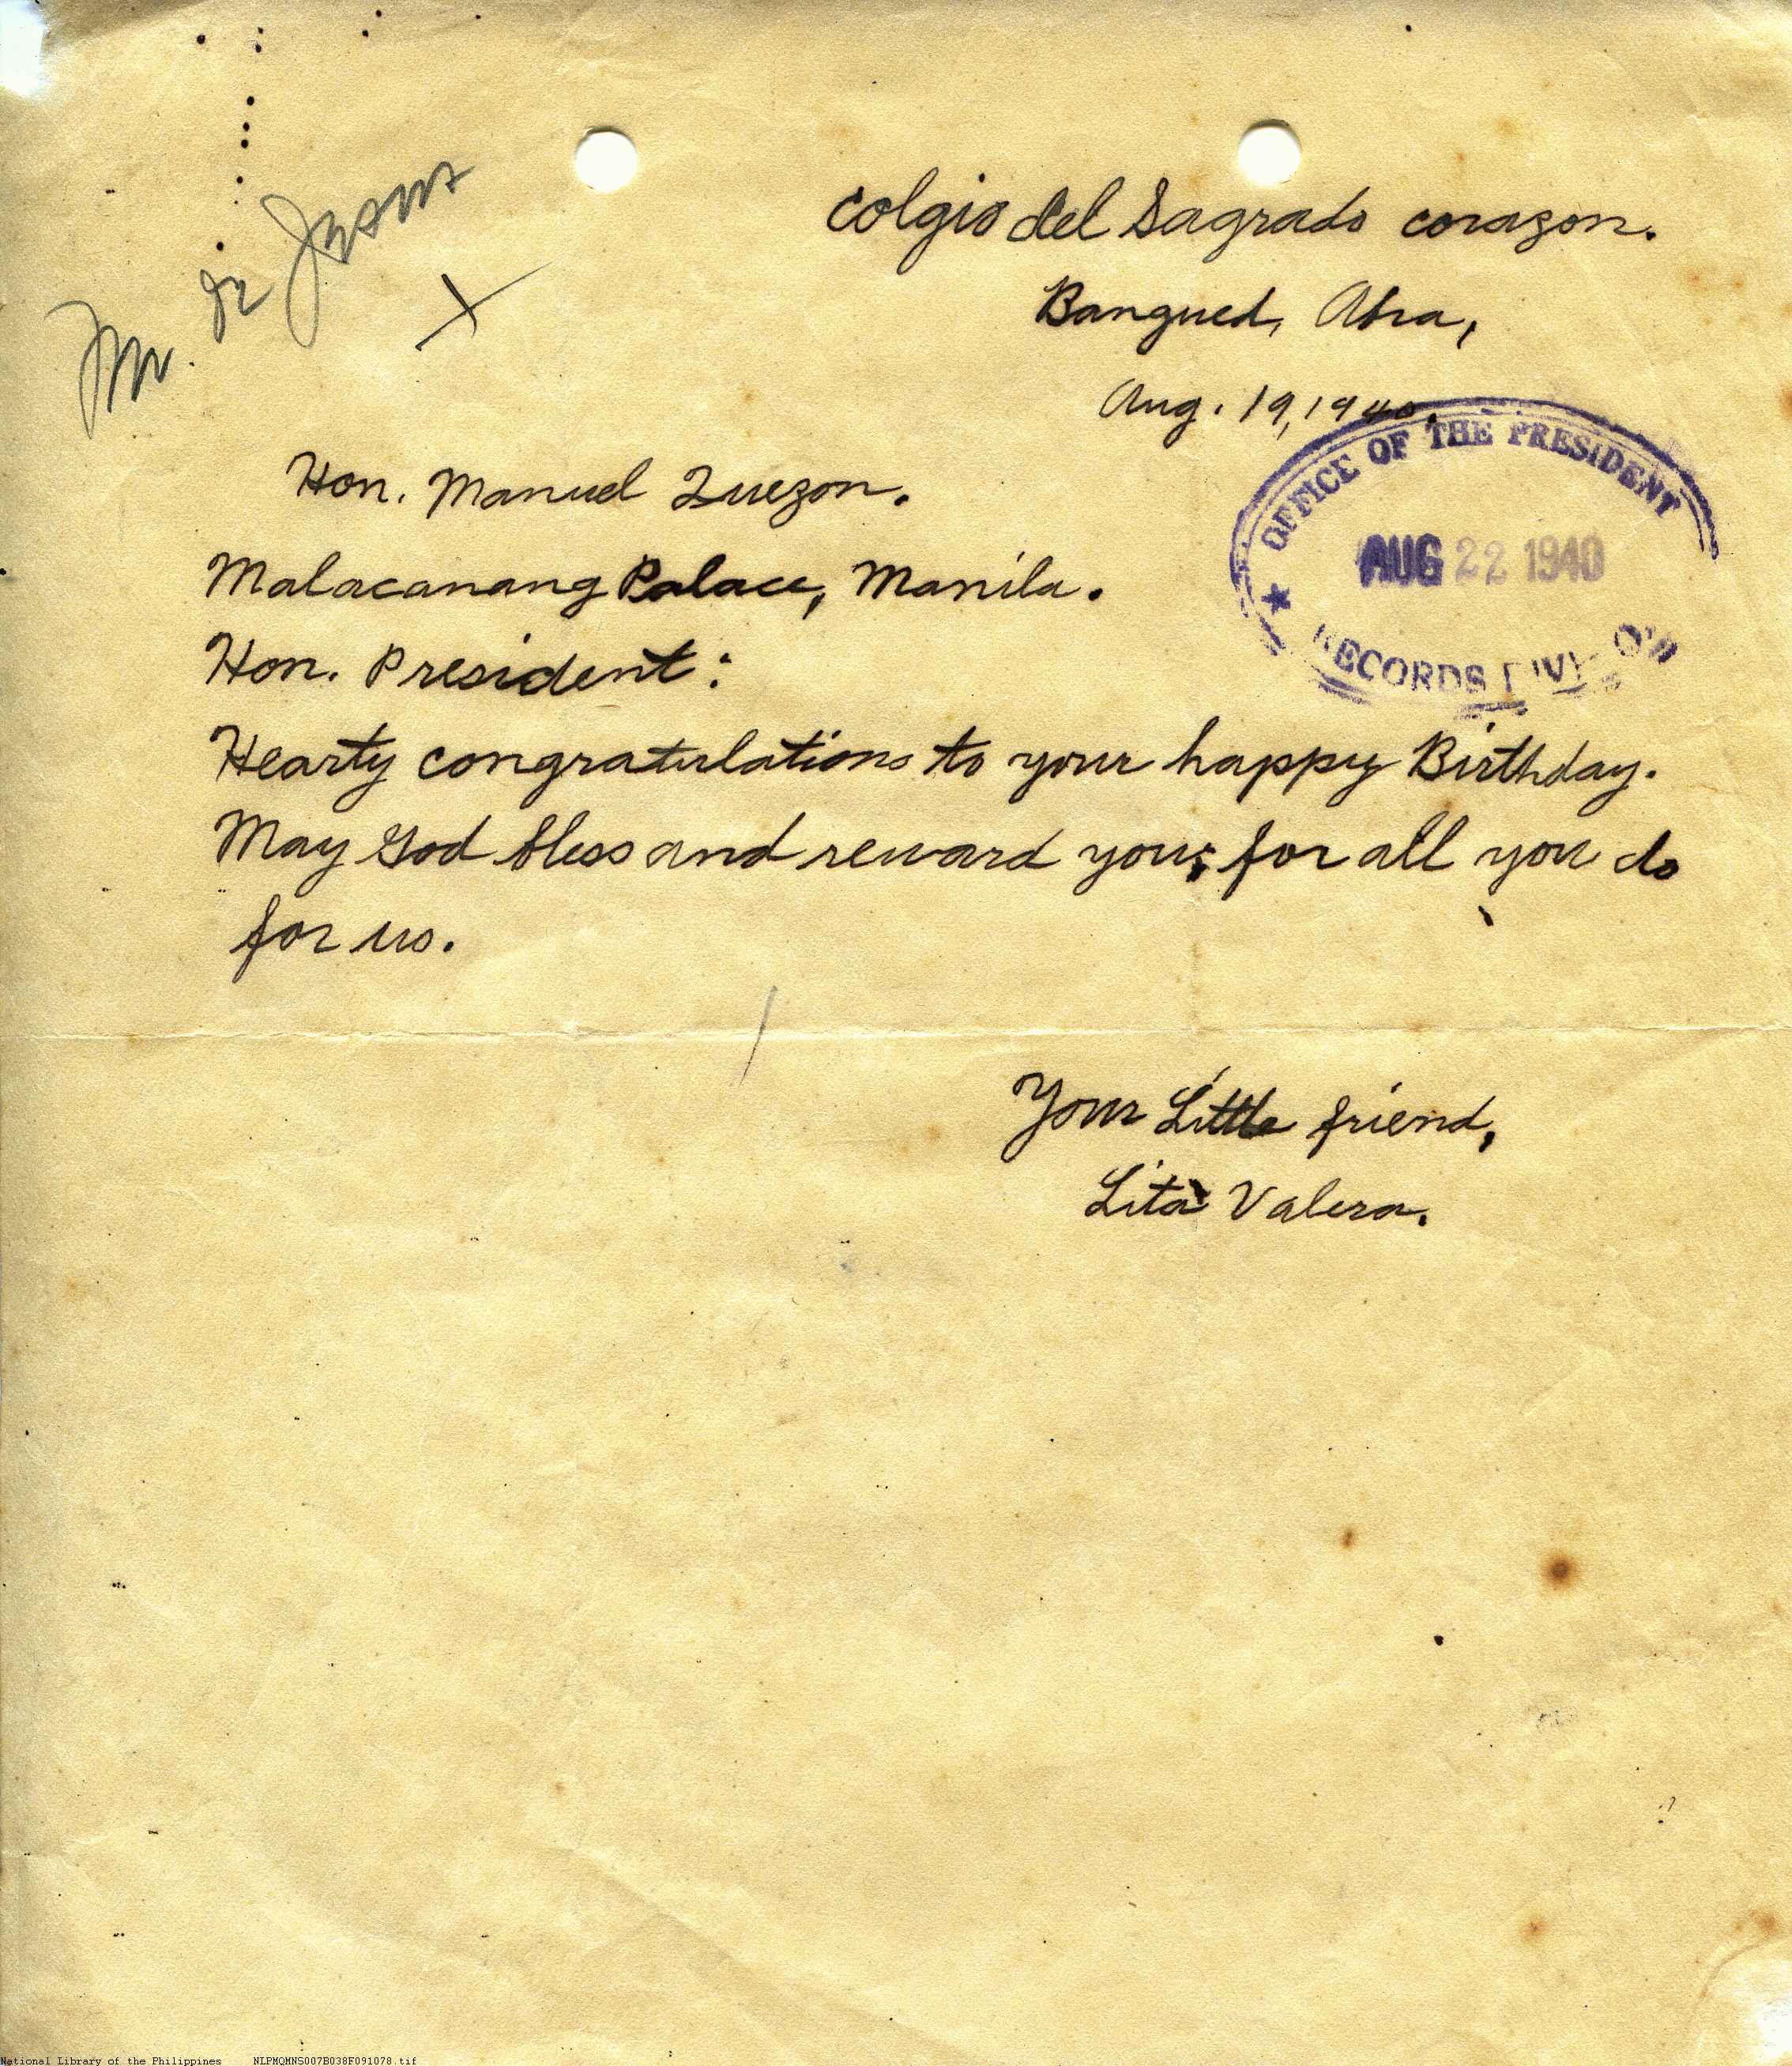 Mr. de Jesus
X
colgio del Sagrado corazon.
Bangued, Abra,
Aug. 19, 1940.
OFFICE OF THE PRESIDENT
AUG 22 1940
RECORDS DIVISION
Hon. Manuel Quezon.
Malacanang Palace, Manila.
Hon. President:
Hearty congratulations to your happy Birthday.
May God bless and reward you; for all you do
for us.
Your Little friend,
Lita Valera.
National Library of the Philippines NLPMQMNS007B038F091078.tif